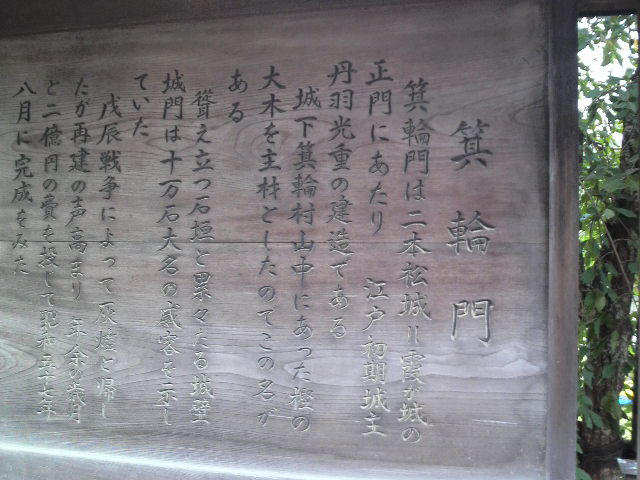 箕輪門
箕輪門は二本松城〃霞が城の
正門にあたり 江戸初期城主
丹羽光重の建造である
城下箕輪村山中にあった樫の
大木を主材としたのでこの名が
ある
聳え立つ石垣と累々たる城壁
城門は十万石大名の威容を示し
ていた
戊辰戦争によって灰燼と帰し
たが再建の声高まり 年余の歳月
と二億円の費を投じて昭和五十七年
八月に完成をみた